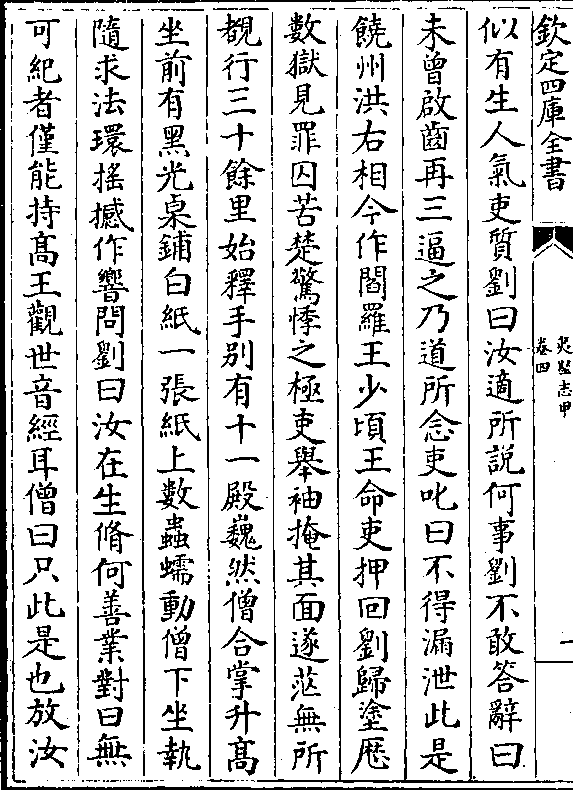 欽定四庫全書
夷堅志甲
卷四
似有生人氣吏質劉曰汝適所說何事劉不敢答辭曰
未曾啟齒再三逼之乃道所念吏叱曰不得漏泄此是
饒州洪右相今作閻羅王少頃王命吏押回劉歸塗歴
數獄見罪囚苦楚驚悸之極吏舉袖掩其面遂茫無所
覩行三十餘里始釋手别有十一殿巍然僧合掌升髙
坐前有黑光桌鋪白紙一張紙上數蟲蠕動僧下坐執
隨求法環搖撼作響問劉曰汝在生脩何善業對曰無
可紀者僅能持髙王觀世音經耳僧曰只此是也放汝